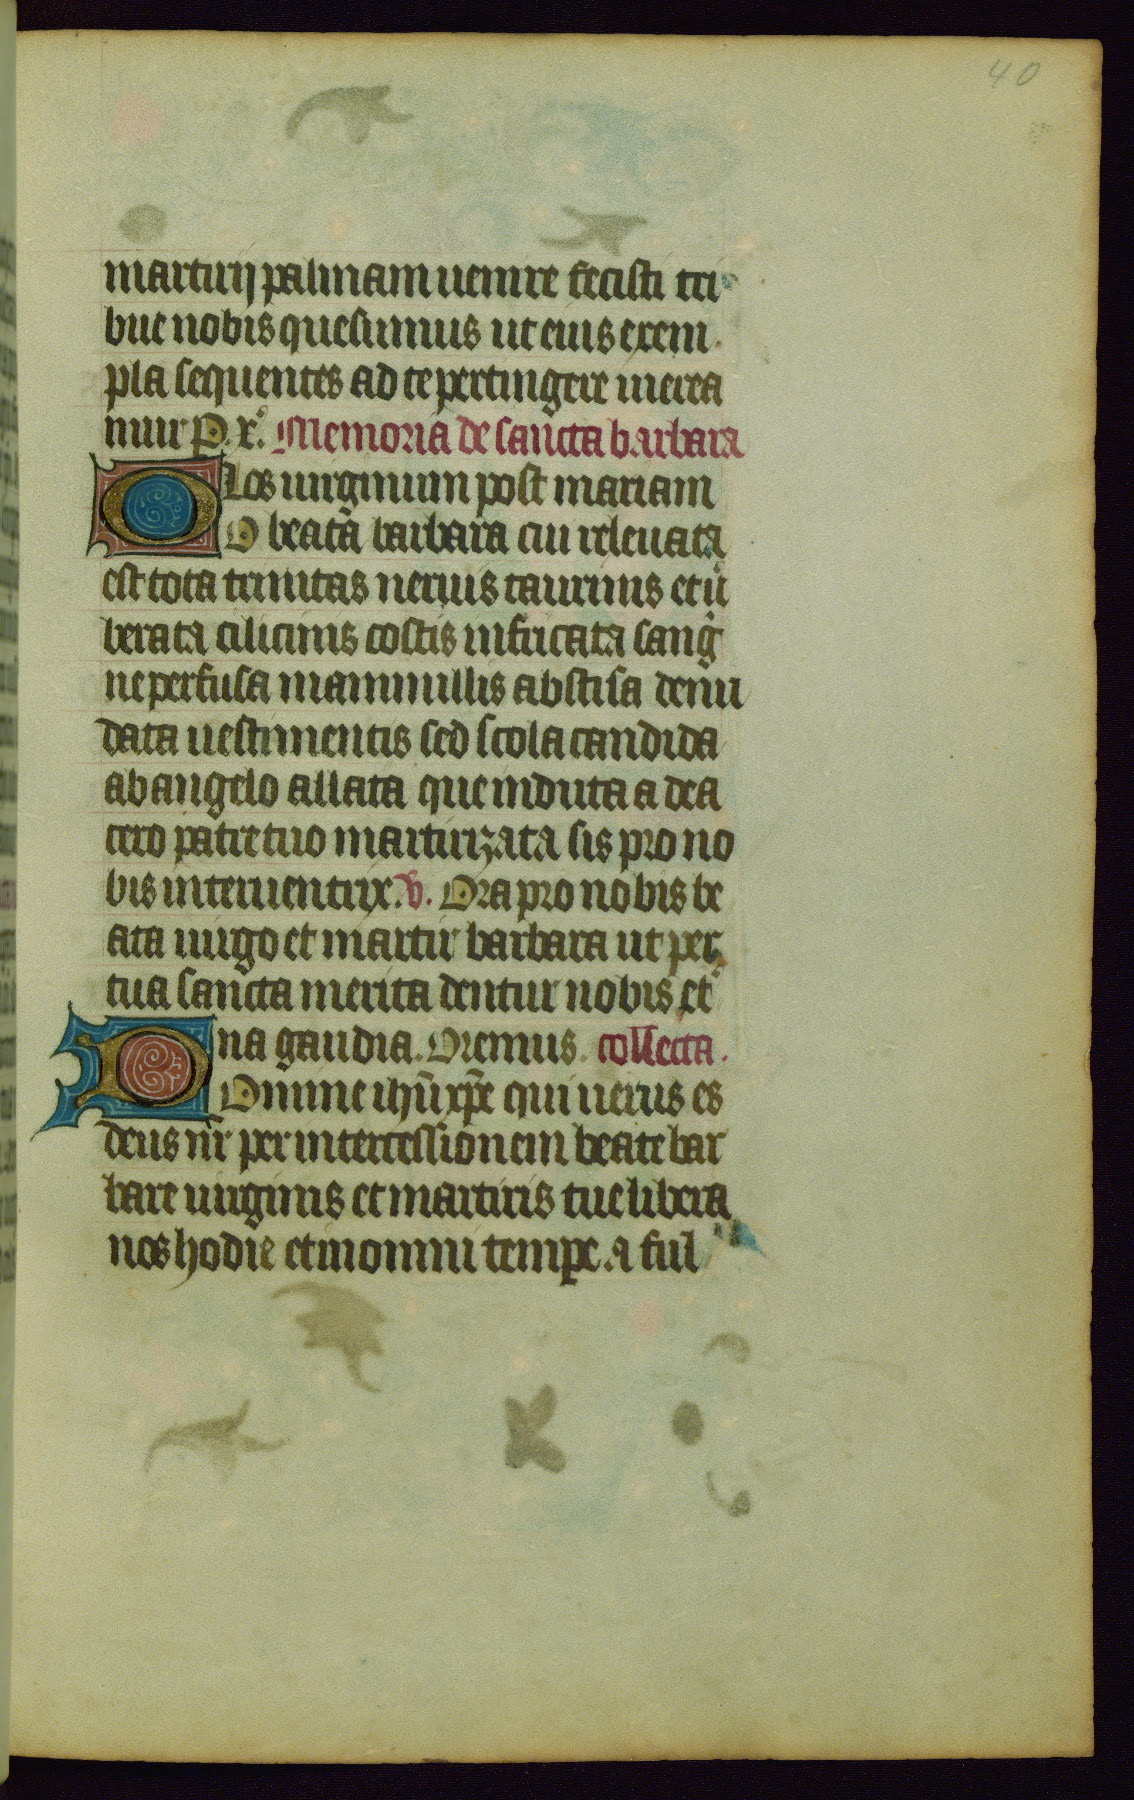 40
martirij palmam uenire fecisti tri
bue nobis quesumus ut eius exem
pla sequentes ad te pertingere merea
mur P. x͒. Memoria de sancta barbara
O los uirginum post mariam
O beata barbara cui releuata
est tota trinitas neruis taurinis et ū
berata cilicinis costis infricata sang̾
ne perfusa mammillis abscisa denu
data uestimentis sed stola candida
ab angelo allata que induta a dea
tero patre tuo martirizata sis pro no
bis interuentrix. v. Ora pro nobis be
ata uirgo et martir barbara ut per
tua sancta merita dentur nobis et̾
D na gaudia. Oremus. collecta.
Omine ihū xp̄e qui uerus es
deus nr̄ per intercessionem beate bar
bare uirginis et martiris tue libera
nos hodie et in omni tempe. a ful